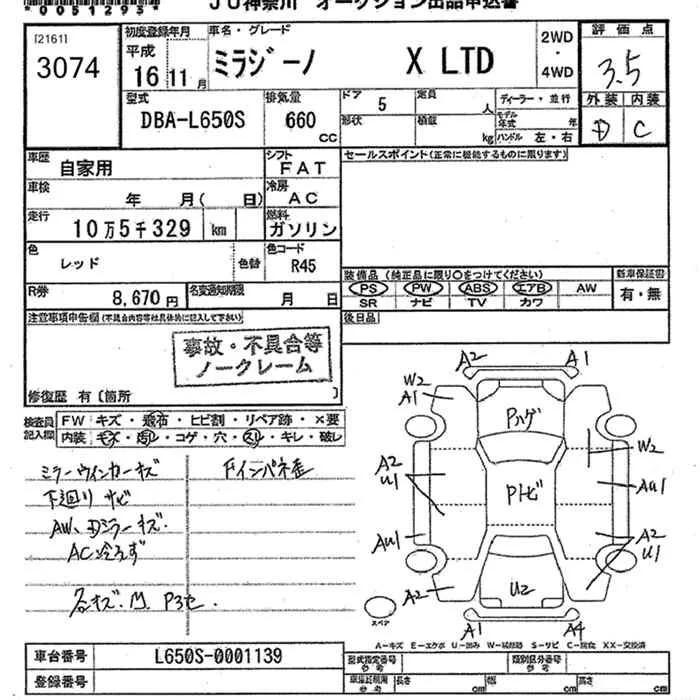 0051293
JU神奈川 オークション出品申込書
[2161]
3074
初度登録年月
平成
16 11月
車名・グレード
ミラジーノ X LTD
2WD
・
4WD
評価点
3.5
外装 内装
D C
型式
DBA-L650S
排気量
660
CC
ドア 5
定員 人
形状
積載 kg
ディーラー・並行
モデル年式 年
ハンドル 左・右
車歴
自家用
シフト
FAT
セールスポイント(正常に機能するものに限ります)
車検
年 月( 日)
冷房
AC
走行
10万5千329 km
燃料
ガソリン
色
レッド
色替
色コード
R45
R券
8,670円
名変通知期限
月 日
装備品(純正品に限り○をつけてください)
PS PW ABS エアB AW
SR ナビ TV カワ
新車保証書
有・無
注意事項申告欄(不具合内容等は具体的に記入して下さい)
事故・不具合等
ノークレーム
後日品
修復歴 有〔箇所 〕
検査員
記入欄
FW キズ・補布・ヒビ割・リペア跡・×要
内装 キズ・汚レ・コゲ・穴・スレ・キレ・破レ
ミラーウインカーキズ
下廻り サビ
AW、Dミラーキズ.
AC冷えず
Fインパネ歪
A2 A1
W2
A1
Pハゲ
W2
A2
U1
Pトビ
AU1
AU1
A2
U1
A2
U2
スペア
A1 A4
A-キズ E-エクボ U-凹み W-補修跡 S-サビ C-腐食 XX-交換済
車台番号
L650S-0001139
登録番号
型式指定番号
参考
類別区分番号
参考
長さ cm
幅 cm
高さ cm